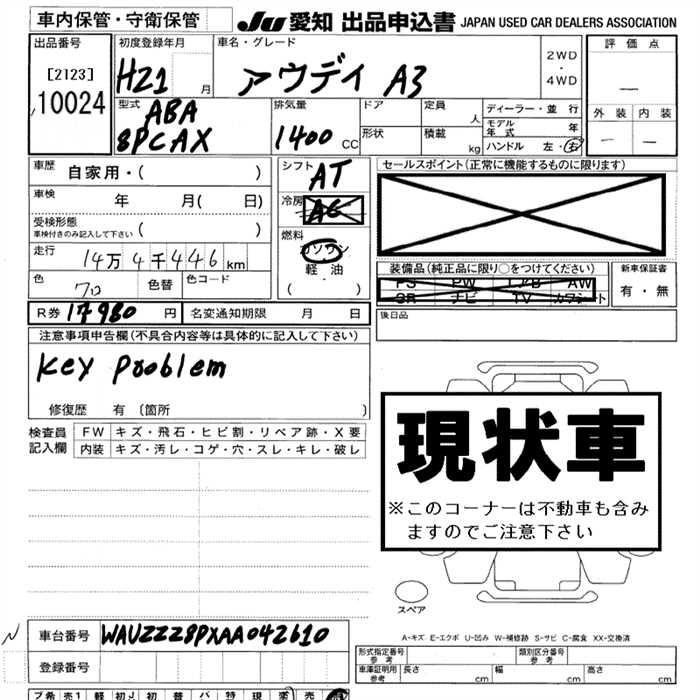 車内保管・守衛保管
JU 愛知 出品申込書 JAPAN USED CAR DEALERS ASSOCIATION
出品番号
[2123]
10024
初度登録年月
H21 月
車名・グレード
アウディ A3
2WD
・
4WD
評価点
—
外装 内装
— —
型式
ABA
8PCAX
排気量
1400 CC
ドア
定員 人
形状
積載 kg
ディーラー・並行
モデル年式 年
ハンドル 左・右
車歴 自家用・( )
車検 年 月( 日)
受検形態
車検付きのみ記入して下さい ( )
走行 14万4千446km
色 クロ 色替 色コード
シフト AT
冷房 AC
燃料
ガソリン
軽油
( ・ )
セールスポイント(正常に機能するものに限ります)
装備品(純正品に限り○をつけてください)
PS PW エアB AW
SR ナビ TV カワシート
新車保証書
有・無
R券 17980 円 名変通知期限 月 日
後日品
注意事項申告欄(不具合内容等は具体的に記入して下さい)
Key Problem
修復歴 有 〔箇所 〕
検査員記入欄
FW キズ・飛石・ヒビ割・リペア跡・X要
内装 キズ・汚レ・コゲ・穴・スレ・キレ・破レ
現状車
※このコーナーは不動車も含み
ますのでご注意下さい
スペア
A-キズ E-エクボ U-凹み W-補修跡 S-サビ C-腐食 XX-交換済
車台番号 WAUZZZ8PXAA042610
登録番号
形式指定番号
参考
類別区分番号
参考
車庫証明用
参考
長さ cm 幅 cm 高さ cm